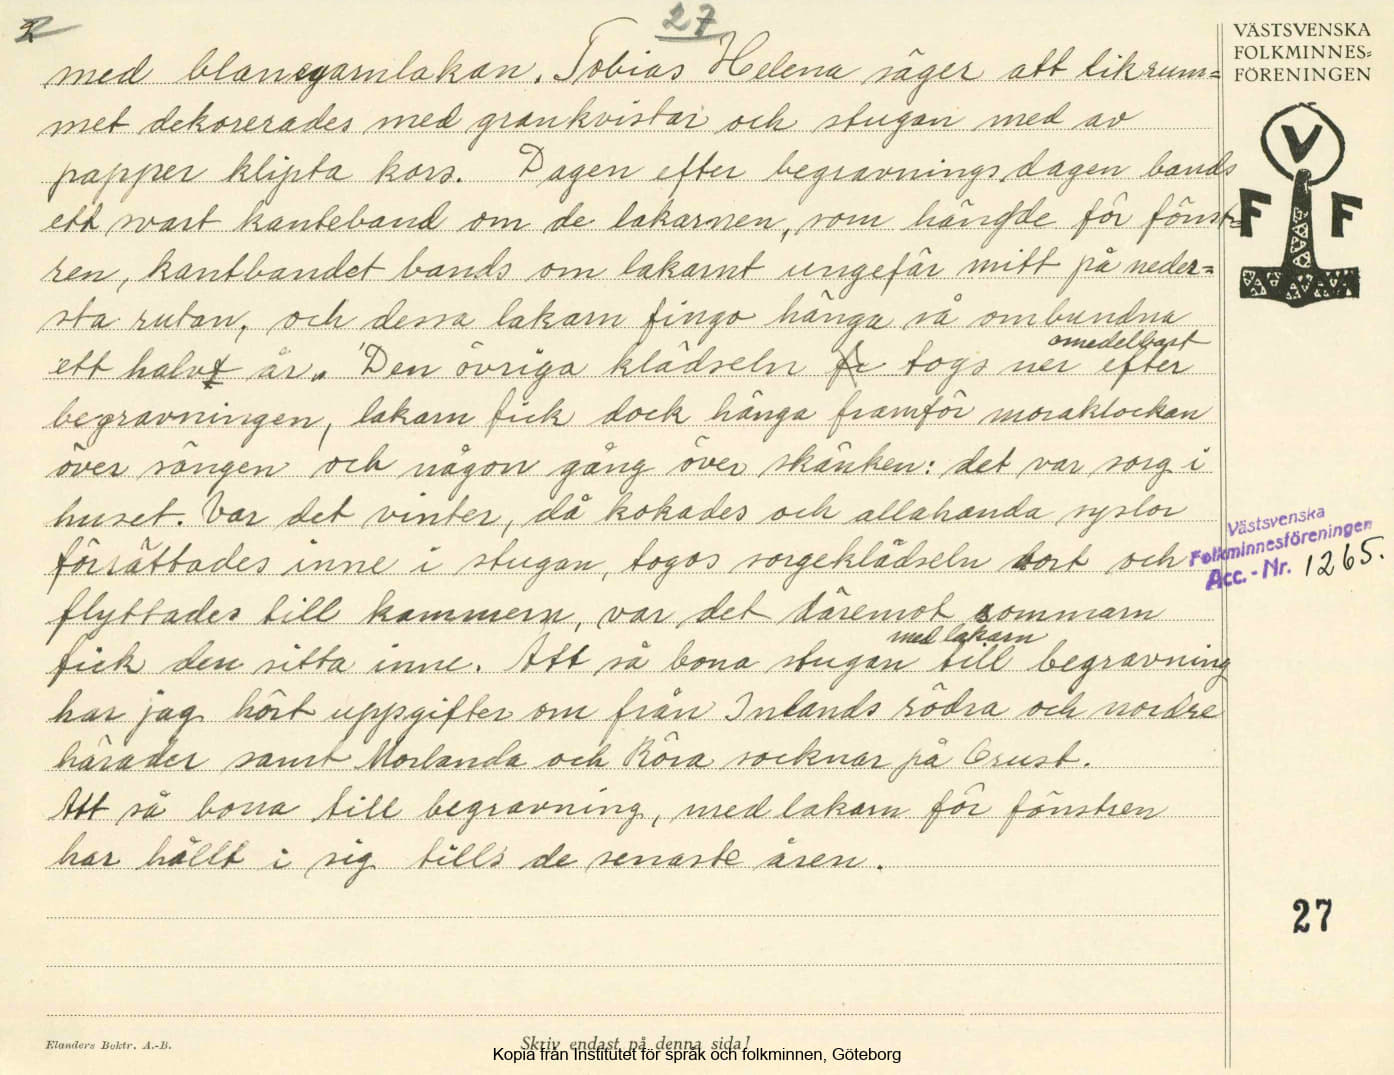 2
27
VÄSTSVENSKA
FOLKMINNES=
FÖRENINGEN
med blansgarnlakan. Tobias Helena säger att likrum=
met dekorerades med grankvistar och stugan med av
papper klipta kors. Dagen efter begravningsdagen bands
ett svart kanteband om de lakarnen, som hängde för fönst=
ren, kantbandet bands om lakarnt ungefär mitt på neder=
sta rutan, och dessa lakarn fingo hänga så ombundna
omedelbart
ett halvt år. Den övriga klädseln togs ner efter
begravningen, lakarn fick dock hänga framför moraklockan
över sängen och någon gång över skänken: det var sorg i
huset. Var det vinter, då kokades och allahanda syslor
förrättades inne i stugan, togos sorgeklädseln bort och
flyttades till kammern, var det däremot sommarn
med lakarn
fick den sitta inne. Att så bona stugan till begravning
har jag hört uppgifter om från Inlands södra och nordre
härader samt Morlanda och Röra socknar på Orust.
Att så bona till begravning, med lakarn för fönstren
har hållt i sig tills de senaste åren.
V
F F
Västsvenska
Folkminnesföreningen
Acc. - Nr. 1265.
27
Elanders Boktr. A.-B.
Skriv endast på denna sida!
Kopia från Institutet för språk och folkminnen, Göteborg